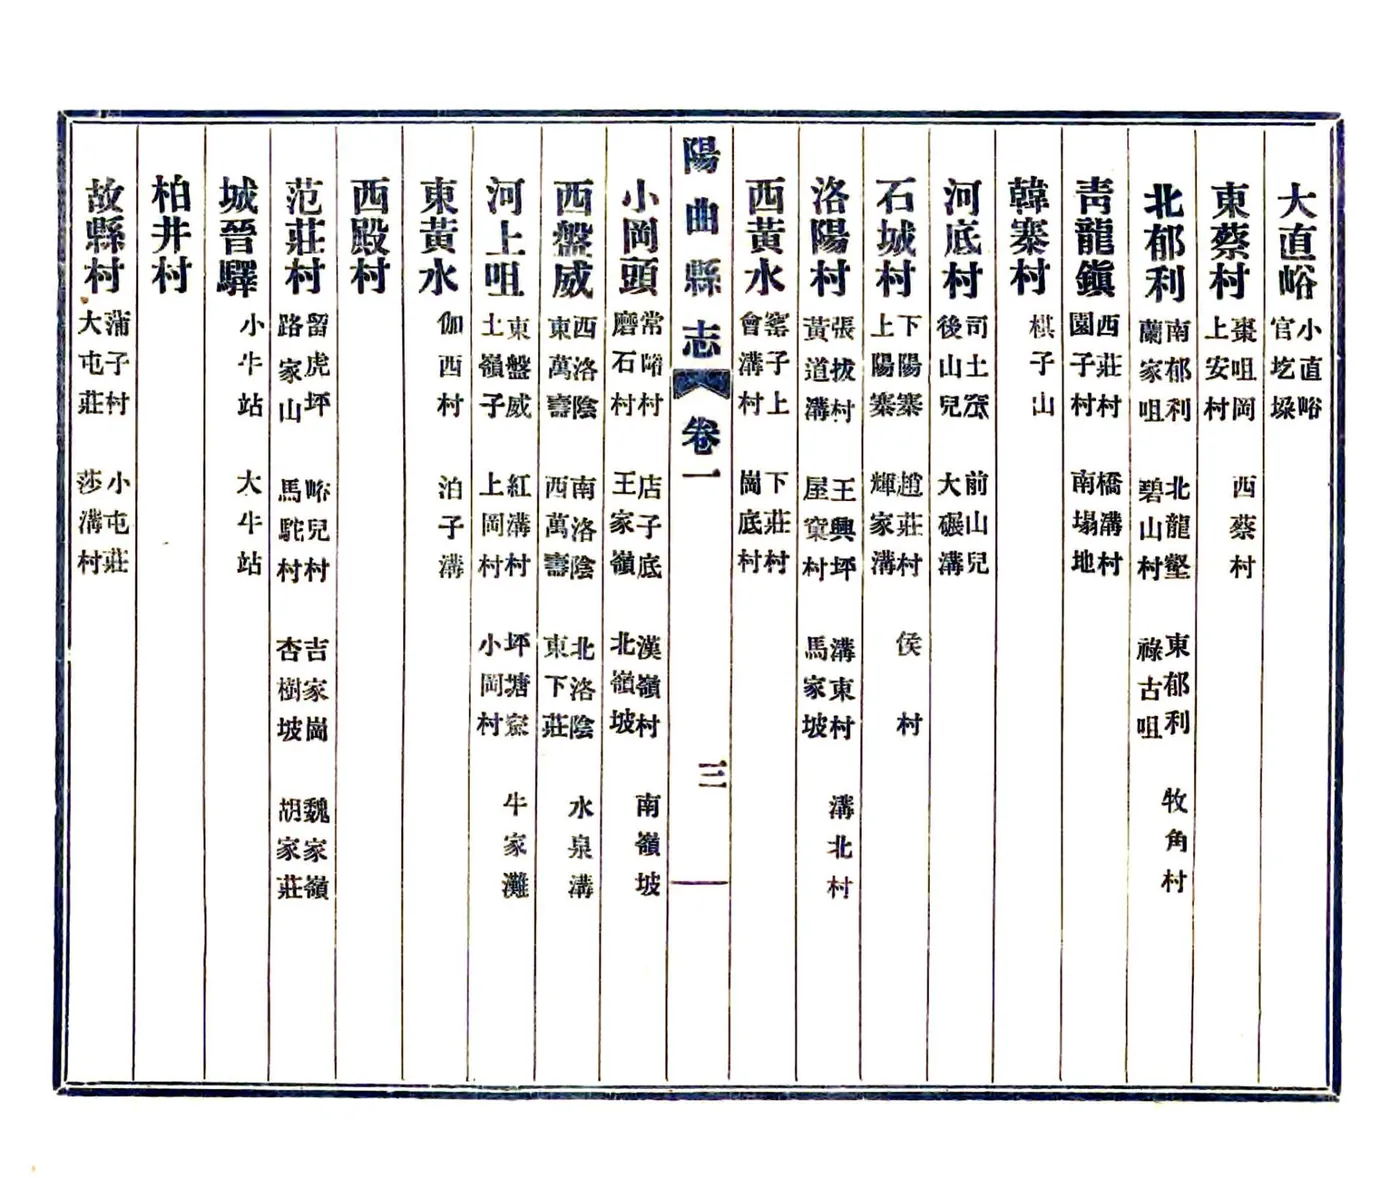 大直峪 小直峪 官圪垛
東蔡村 棗咀岡 上安村 西蔡村
北郁利 南郁利 蘭家咀 北龍壑 碧山村 東郁利 祿古咀 牧角村
青龍鎮 西莊村 園子村 橋溝村 南塌地
韓寨村 棋子山
河底村 司土窊 後山兒 前山兒 大碾溝
石城村 下陽寨 上陽寨 趙莊村 輝家溝 侯村
洛陽村 張拔村 黃道溝 王興坪 屋窠村 溝東村 馬家坡 溝北村
西黃水 窰子上 會溝村 下莊村 崗底村
陽曲縣志 卷一 三
小岡頭 常峪村 磨石村 店子底 王家嶺 漢嶺村 北嶺坡 南嶺坡
西盤威 西洛陰 東萬壽 南洛陰 西萬壽 北洛陰 東下莊 水泉溝
河上咀 東盤威 土嶺子 紅溝村 上岡村 坪塘窊 小岡村 牛家灘
東黃水 伽西村 泊子溝
西殿村
范莊村 留虎坪 路家山 峪兒村 馬駝村 吉家崗 杏樹坡 魏家嶺 胡家莊
城晉驛 小牛站 大牛站
柏井村
故縣村 蒲子村 大屯莊 小屯莊 莎溝村